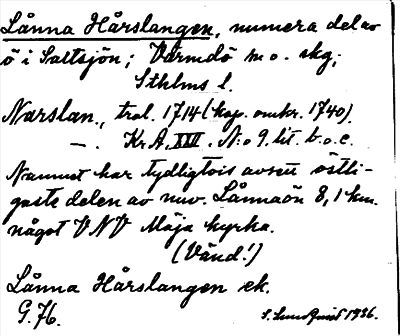 Lånna Hårslangen, numera del av
ö i Saltsjön; Värmdö m. o. skg;
Sthlms l.
Narslan., trol. 1714 (kop. omkr. 1740).
—. Kr. A. XXVI. N:o 9. lit. b. o. c.
Namnet har tydligtvis avsett östli-
gaste delen av nuv. Lånnaön 8,1 km.
något V N V Möja kyrka.
(Vänd!)
Lånna Hårslangen ek.
G. 76.
S. Lundquist 1936.